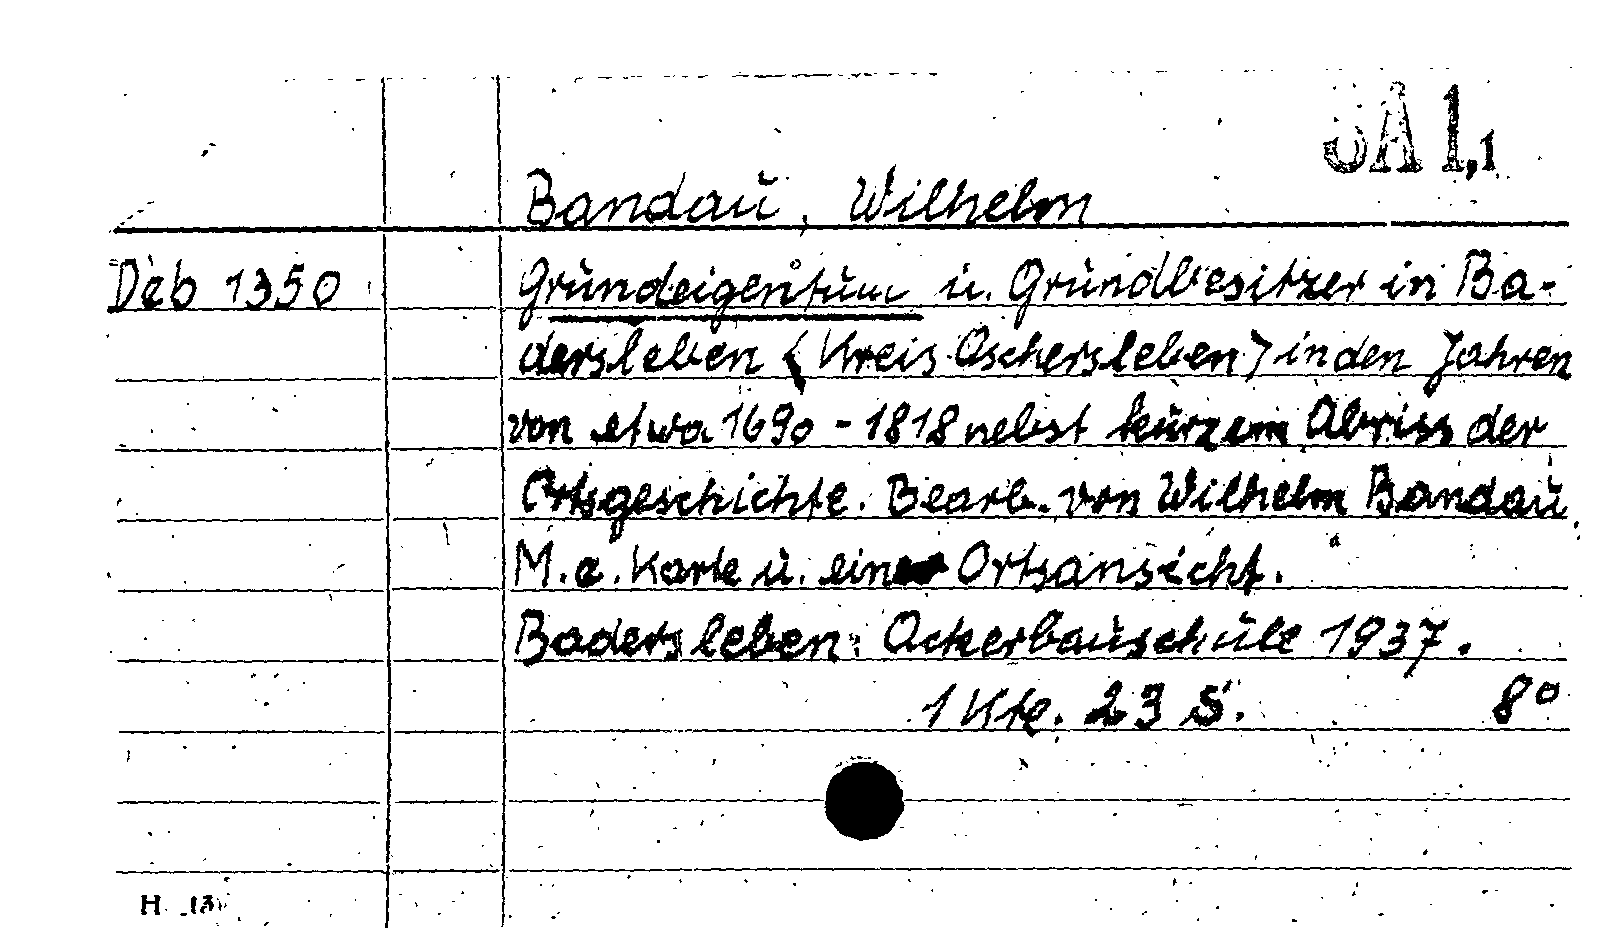 SA 1,1
Bandau, Wilhelm
Deb 1350
Grundeigentum u. Grundbesitzer in Ba-
dersleben <Kreis Oschersleben> in den Jahren
von etwa 1690 - 1818 nebst kurzem Abriss der
Ortsgeschichte. Bearb. von Wilhelm Bandau.
M. e. Karte u. einer Ortsansicht.
Badersleben: Ackerbauschule 1937.
1 Kte. 23 S. 8°